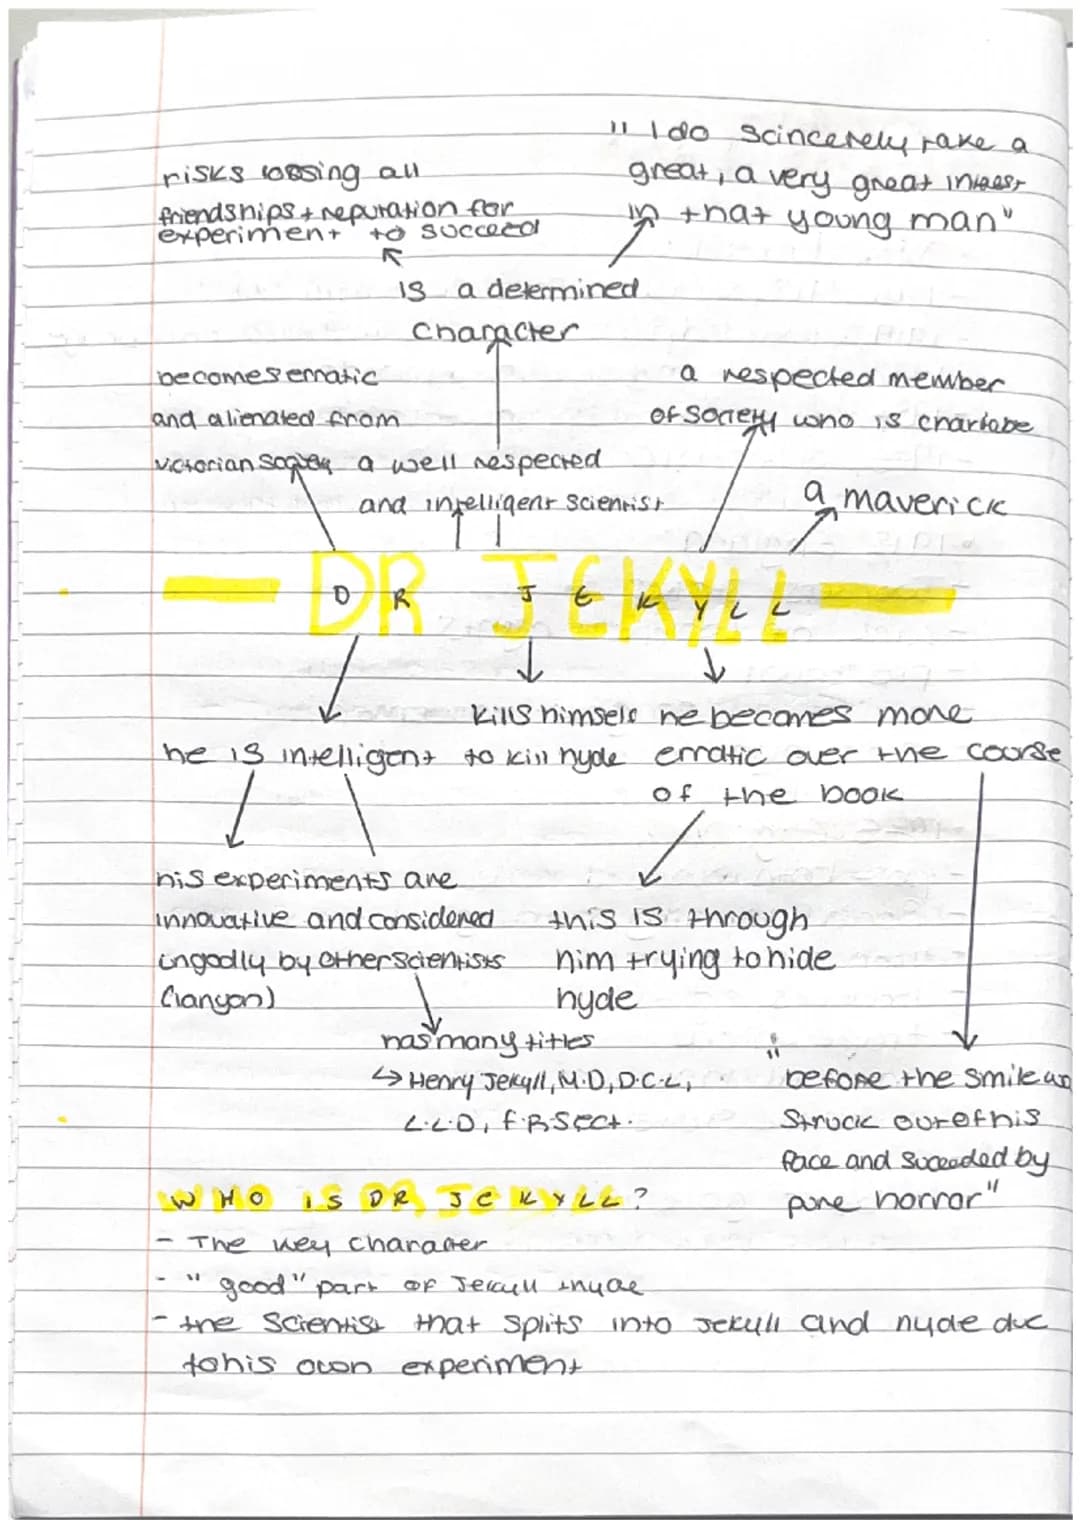 " I do scincerely take a
great, a very great interest
in that young man"
risks lossing all
friendships + reputation for
experiment to succeed
is a determined
character
becomes erratic
and alienated from
victorian society
a well respected
and intelligent scientist
a respected member
of society who is charitabe
a maverick
DR JEKYLL
he is intelligent
kills himself
to kill hyde
he becomes more
erratic over the course
of the book
his experiments are
innovative and considered
ungodly by other scientists
(lanyon)
this is through
him trying to hide
hyde
has many titles
↳ Henry Jekyll, M.D, D.C.L,
L.L.D, F.R.S ect.
"
before the smile was
struck out of his
face and suceeded by
pure horror"
WHO IS DR JEKYLL?
- The key character
- "good" part of Jekyll + hyde
- the scientist that splits into Jekyll and hyde due
to his own experiment